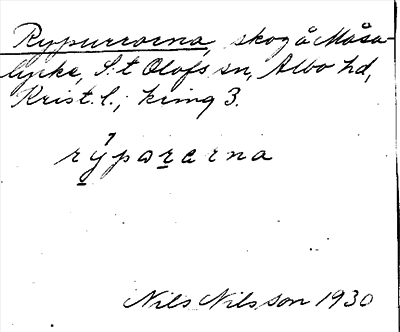 Rypurrorna, skog å Måsa-
lycke, S:t Olofs sn, Albo hd,
Krist. l.; kring 3.
rýpararna
Nils Nilsson 1930